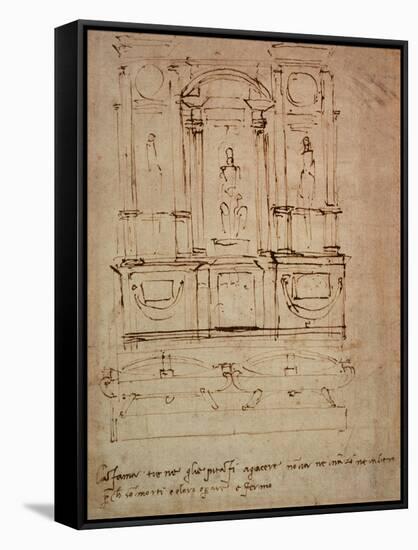 La fama tiene gli epitafi agiacere no va ne inazi ne indietro
pch so morti e loro operare e fermo